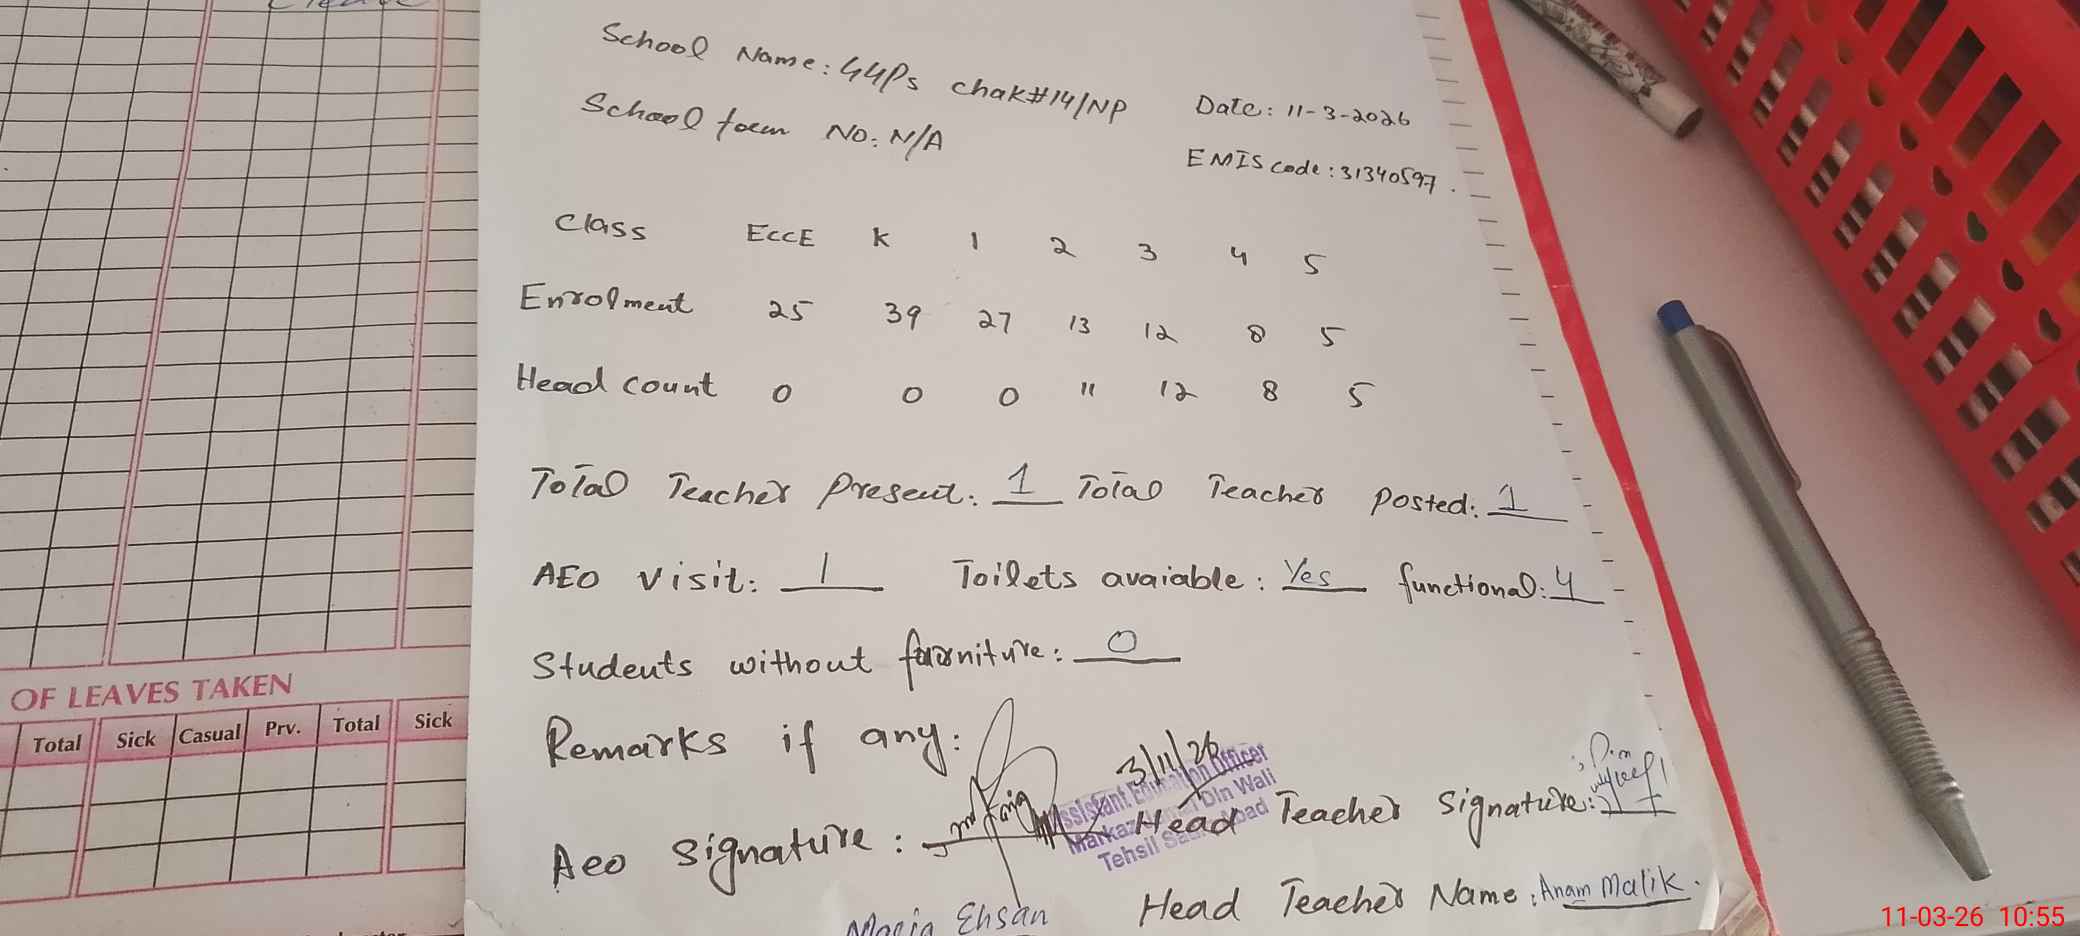 School Name: GGPs chak#14/NP Date: 11-3-2026
School foem No: N/A EMIS code: 31340597.
Class ECCE K 1 2 3 4 5
Enrolment 25 39 27 13 12 8 5
Head count 0 0 0 11 12 8 5
Total Teacher Present: 1 Total Teacher Posted: 1
AEO visit: 1 Toilets avaiable: Yes functional: 4
Students without furniture: 0
Remarks if any:
3/11/26
Assistant Education Officer
Markaz Din Wali
Tehsil
Aeo signature: Head Teacher Signature:
Maria Ehsan Head Teacher Name: Anam Malik.
OF LEAVES TAKEN
Total Sick Casual Prv. Total Sick
11-03-26 10:55